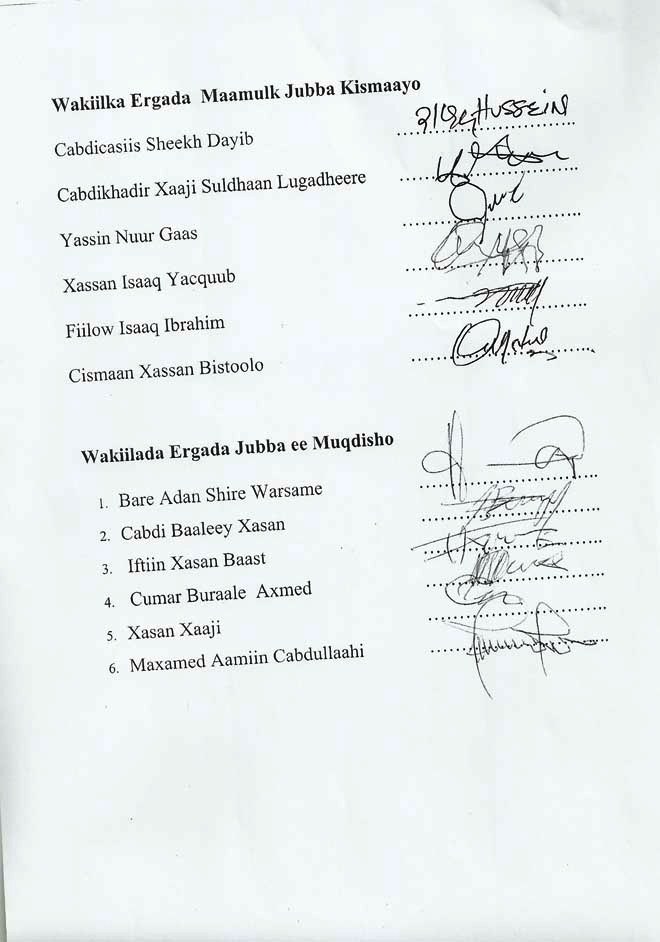 Wakiilka Ergada Maamulk Jubba Kismaayo
Cabdicasiis Sheekh Dayib
HUSSEIN
Cabdikhadir Xaaji Suldhaan Lugadheere
Yassin Nuur Gaas
Xassan Isaaq Yacquub
Fiilow Isaaq Ibrahim
Cismaan Xassan Bistoolo
Wakiilada Ergada Jubba ee Muqdisho
1. Bare Adan Shire Warsame
2. Cabdi Baaleey Xasan
3. Iftiin Xasan Baast
4. Cumar Buraale Axmed
5. Xasan Xaaji
6. Maxamed Aamiin Cabdullaahi